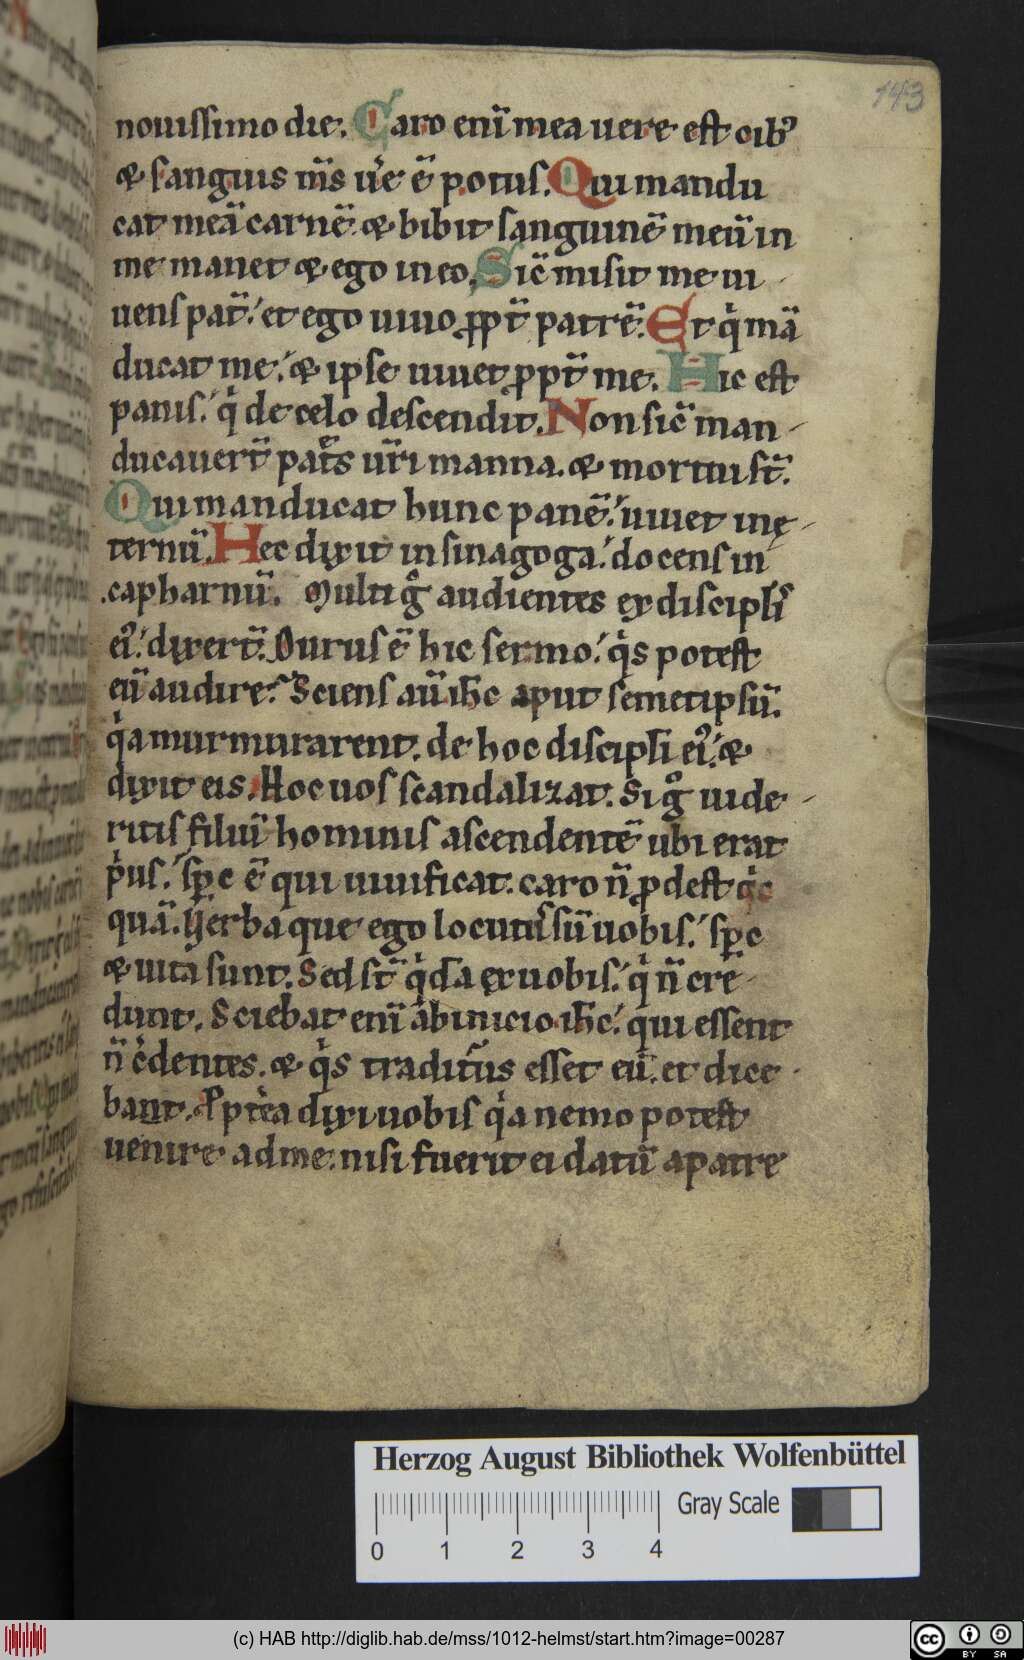 143
nouissimo die. Caro eni͂ mea uere est cib᾽
& sanguis m͂s u͛e e͂ potus. Qui mandu
cat mea͂ carne͂. & bibit sanguine͂ meu͂ in
me manet & ego in eo. Sic͂ misit me ui
uens pat͂. et ego uiuo ꝓpt͂ patre͂. Et qͥ ma͂
ducat me. & ipse uiuet ꝓpt͂ me. Hic est
panis. qͥ de celo descendit. Non sic͂ man
ducauert͂ pat͂s ur͂i manna. & mortui st͂.
Qui manducat hunc pane͂. uiuet in ę
ternu͂. Hec dixit in sinagoga. docens in
capharnu͂. Multi gͦ audientes ex discipl᾽
ei᾽. dixert͂. Durus e͂ hic sermo. qͥs potest
eu͂ audire? Sciens au͂ ih͂c aput semetipsu͂.
qͥa murmurarent. de hoc discipl̄i ei᾽. &
dixit eis. Hoc uos scandalizat. Si gͦ uide
ritis filiu͂ hominis ascendente͂ ubi erat
pͥus. sp͂c e͂ qui uiuificat. caro n͂ ꝓdest qͥc
qua͂. Verba que ego locut᾽ su͂ uobis. sp͂c
& uita sunt. Sed st͂ qͥda͂ ex uobis. qͥ n͂ cre
dunt. Sciebat eni͂ ab inicio ih͂c. qui essent
n͂ c͛dentes. & qͥs traditur᾽ esset eu͂. et dice
bant. Ppt͛ea dixi uobis qͥa nemo potest
uenire ad me. nisi fuerit ei datu͂ a patre
Herzog August Bibliothek Wolfenbüttel
Gray Scale
0 1 2 3 4
(c) HAB http://diglib.hab.de/mss/1012-helmst/start.htm?image=00287
cc BY SA